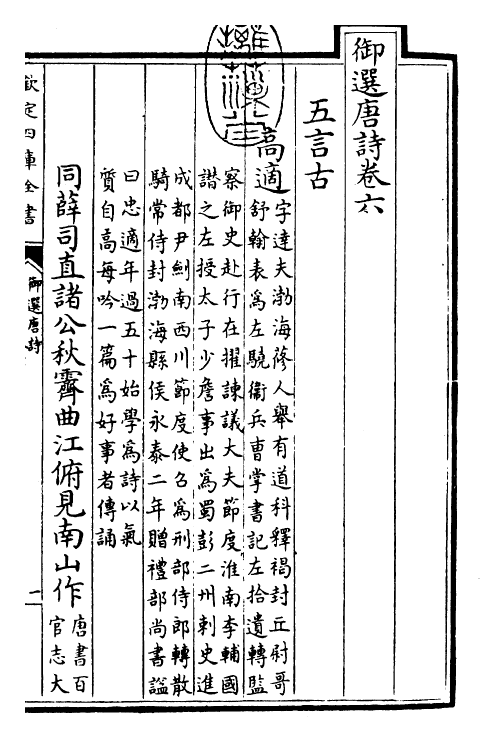 御選唐詩卷六
五言古
高適
字達夫渤海蓚人舉有道科釋褐封丘尉哥
舒翰表為左驍衛兵曹掌書記左拾遺轉監
察御史赴行在擢諫議大夫節度淮南李輔國
譖之左授太子少詹事出為蜀彭二州刺史進
成都尹劍南西川節度使召為刑部侍郎轉散
騎常侍封渤海縣侯永泰二年贈禮部尚書謚
曰忠適年過五十始學為詩以氣
質自高每吟一篇為好事者傳誦
同薛司直諸公秋霽曲江俯見南山作
唐書百
官志大
欽定四庫全書
御選唐詩
一